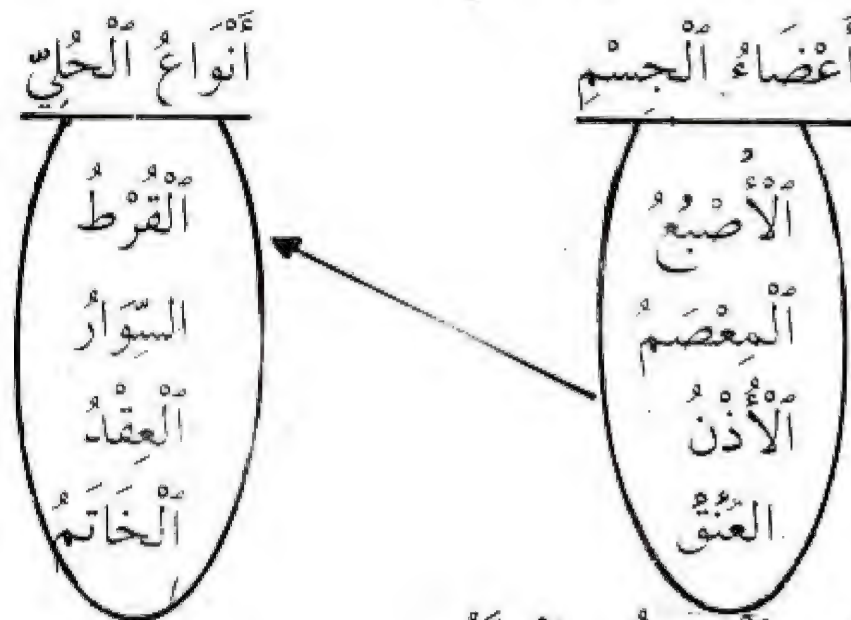 أَعْضَاءُ ٱلْجِسْمِ
ٱلْأُصْبُعُ
ٱلْمِعْصَمُ
ٱلْأُذْنُ
العُنُقُ
أَنْوَاعُ ٱلْحُلِيِّ
ٱلْقُرْطُ
السِّوَارُ
ٱلْعِقْدُ
ٱلْخَاتَمُ